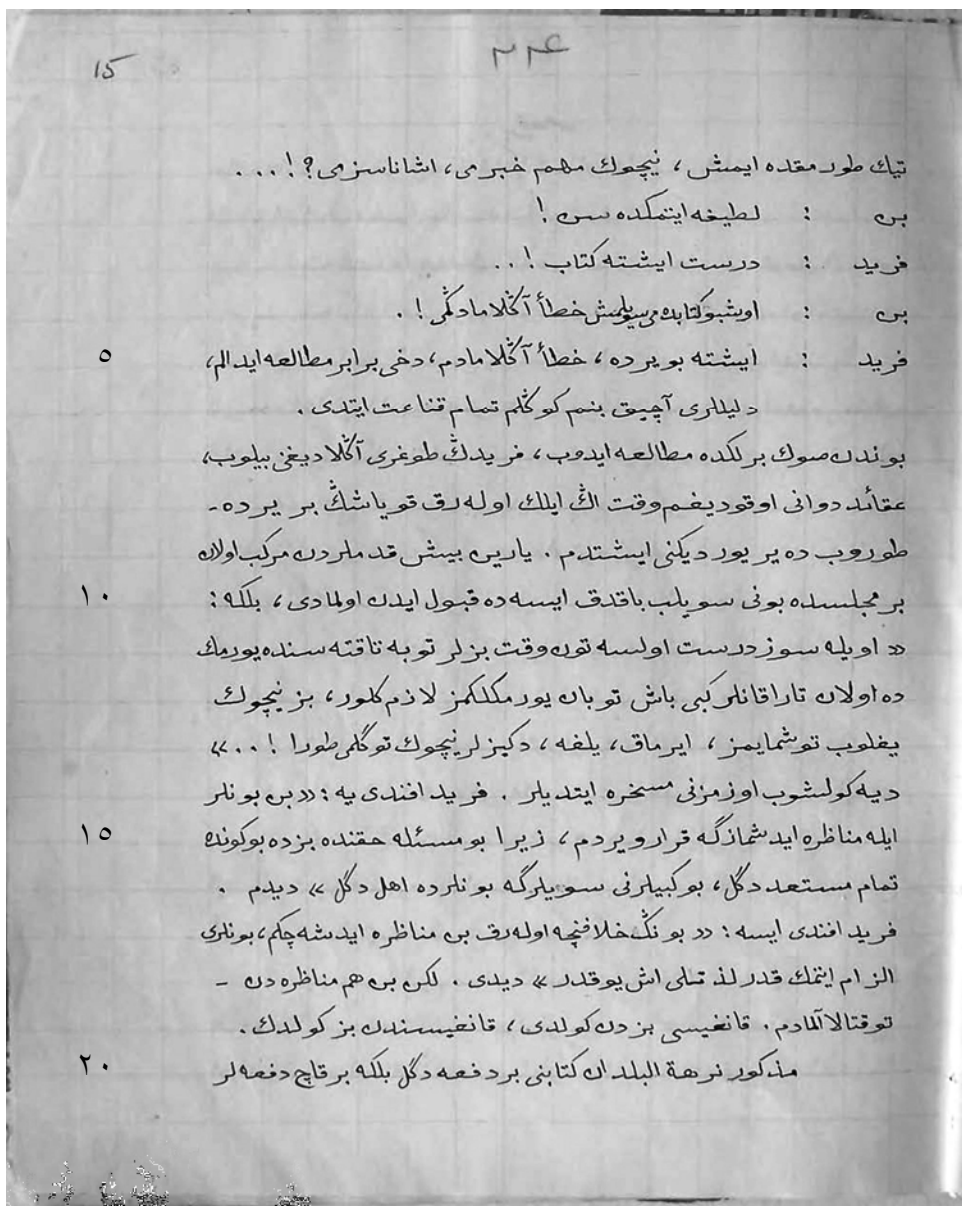 ٢٣٤
15
تيك طور مقده ايمش ، نيچوك مهم خبر مى ، اشاناسزمى ؟ ! . . .
بن : لطيفه ايتمكده سن !
فريد : درست ايشته كتاب ! . .
بن : اوشبو كتابده مى سويلمش خطأ آڭلامادڭمى ! .
٥ فريد : ايشته بو يرده ، خطأ آڭلامادم ، دخى برابر مطالعه ايدالم ،
دليللرى آچيق بنم كوڭلم تمام قناعت ايتدى .
بوندن صوڭ برلكده مطالعه ايدوب ، فريدڭ طوغرى آڭلاديغنى بيلوب ،
عقائد دوانى اوقوديغم وقت اڭ ايلك اوله رق قوياشڭ بر يرده -
طوروب ده ير يورديكنى ايشتدم . يارين بيش قدملردن مركب اولان
١٠ بر مجلسده بونى سويلب باقدق ايسه ده قبول ايدن اولمادى ، بلكه :
« اويله سوز درست اولسه تون وقت بزلر توبه تاقته سنده يورمك
ده اولان تاراقانلر كبى باش توبان يورمكلكمز لازم كلور ، بز نيچوك
يغلوب توشمايمز ، ايرماق ، يلغه ، دكيزلر نيچوك توگلمى طورا ! . . »
ديه كولشوب اوزمزنى مسخره ايتديلر . فريد افندى يه : « بن بونلر
١٥ ايله مناظره ايدشمازگه قرار ويردم ، زيرا بو مسئله حقنده بزده بوكونده
تمام مستعد دگل ، بو كبيلرنى سويلرگه بونلرده اهل دگل » ديدم .
فريد افندى ايسه : « بونڭ خلافنچه اوله رق بن مناظره ايدشه چكم ، بونلرى
الزام ايتمك قدر لذتلى اش يوقدر » ديدى . لكن بن هم مناظره دن -
توقتالا آلمادم . قانغيسى بزدن كولدى ، قانغيسندن بز كولدك .
٢٠ مذكور نزهة البلدان كتابنى بر دفعه دگل بلكه بر قاچ دفعه لر